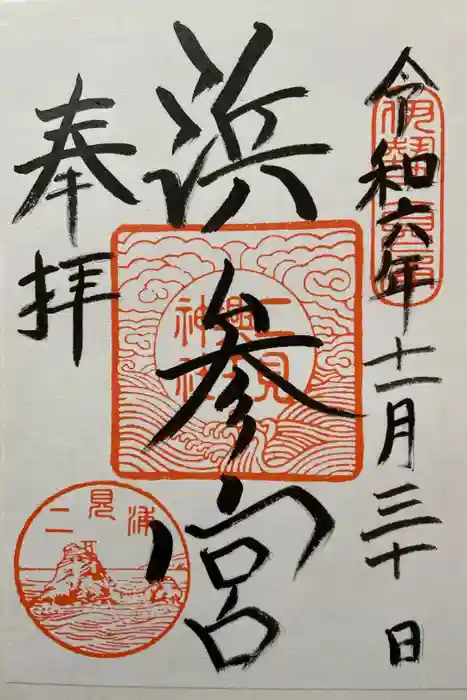 令和六年十一月三十日
伊勢二見
浜参宮
二見興玉神社
奉拝
二見浦